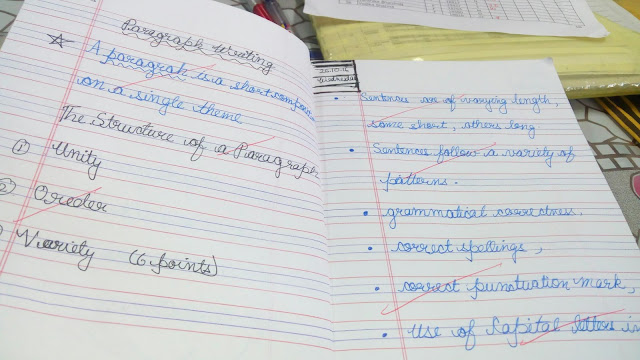 Paragraph Writing
A paragrah is a short composi
on a single theme
The Structure of a Paragraph
① Unity
② Oreder
Variety (6 points)
• Sentences are of varying length,
some short, others long
• Sentences follow a variety of
patterns.
• grammatical correctness.
• correct spellings,
• correct punctuation mark,
• Use of Capital letters in